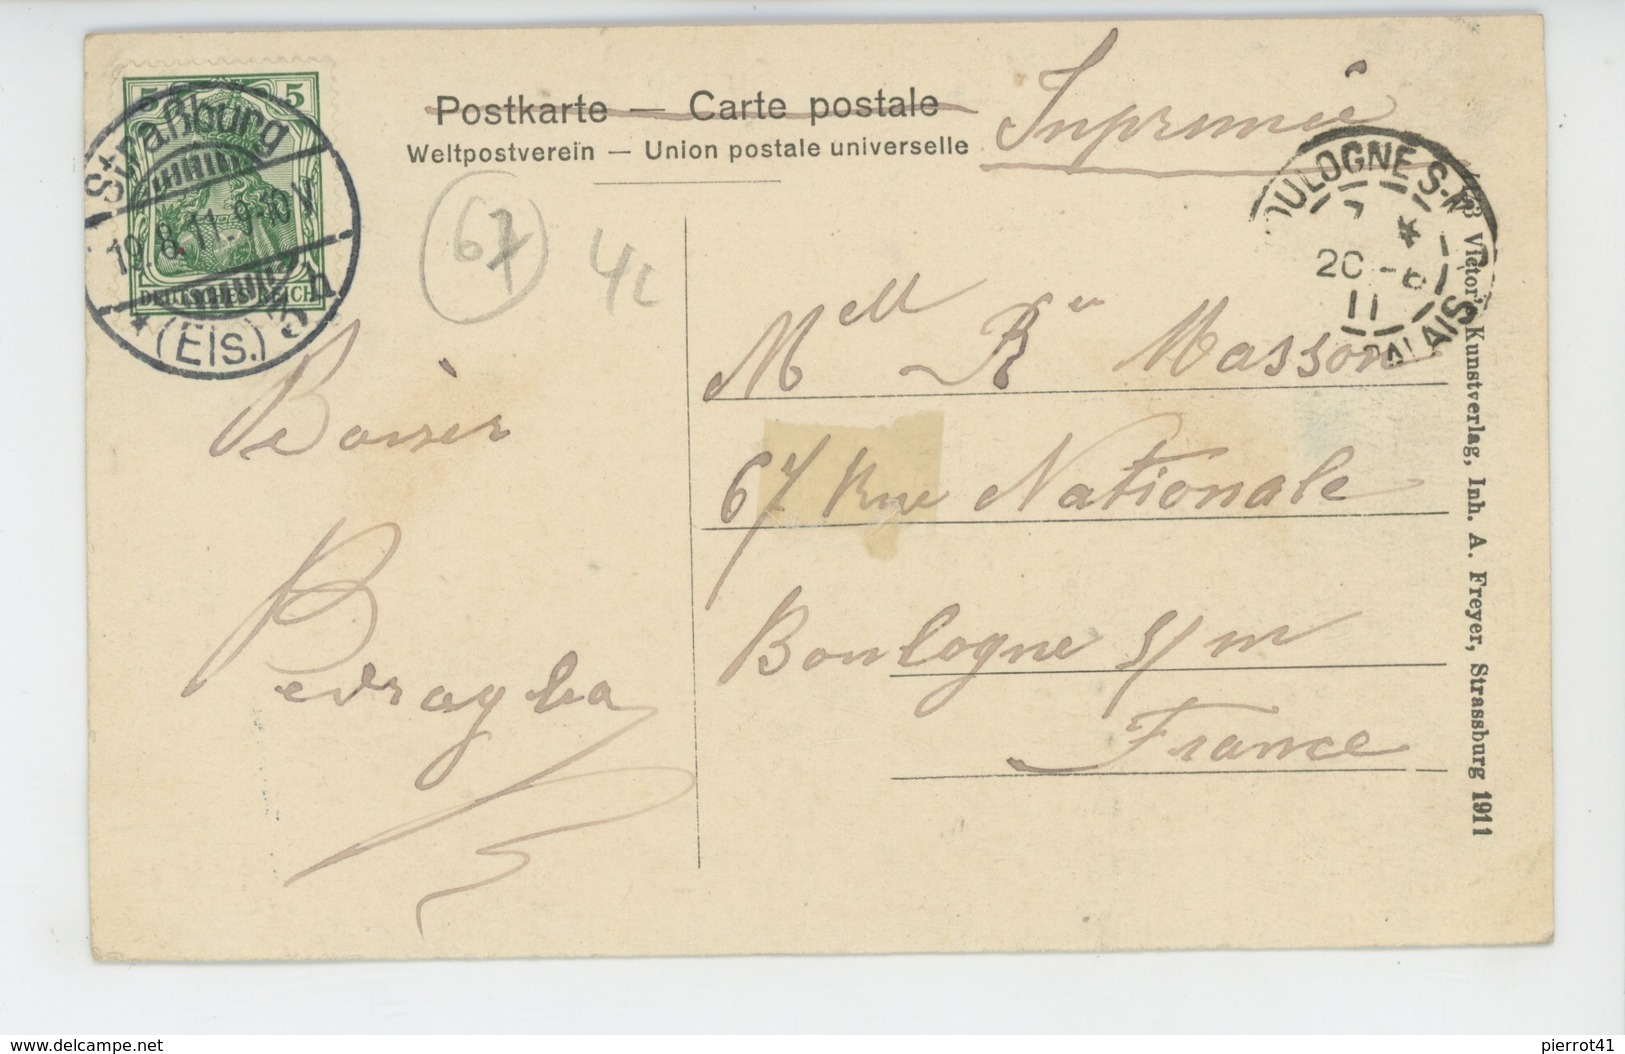 Postkarte — Carte postale
Weltpostverein — Union postale universelle
Inprimée
5 5
DEUTSCHES REICH
Straßburg
19.8.11.9-10V.
* (Els.) 5 h
67
BOULOGNE S-M
20 -8
11
CALAIS
Mell Ren Masson
67 Rue Nationale
Boulogne s/m
France
Baiser
Victor's Kunstverlag, Inh. A. Freyer, Strassburg 1911
www.delcampe.net
pierrot41